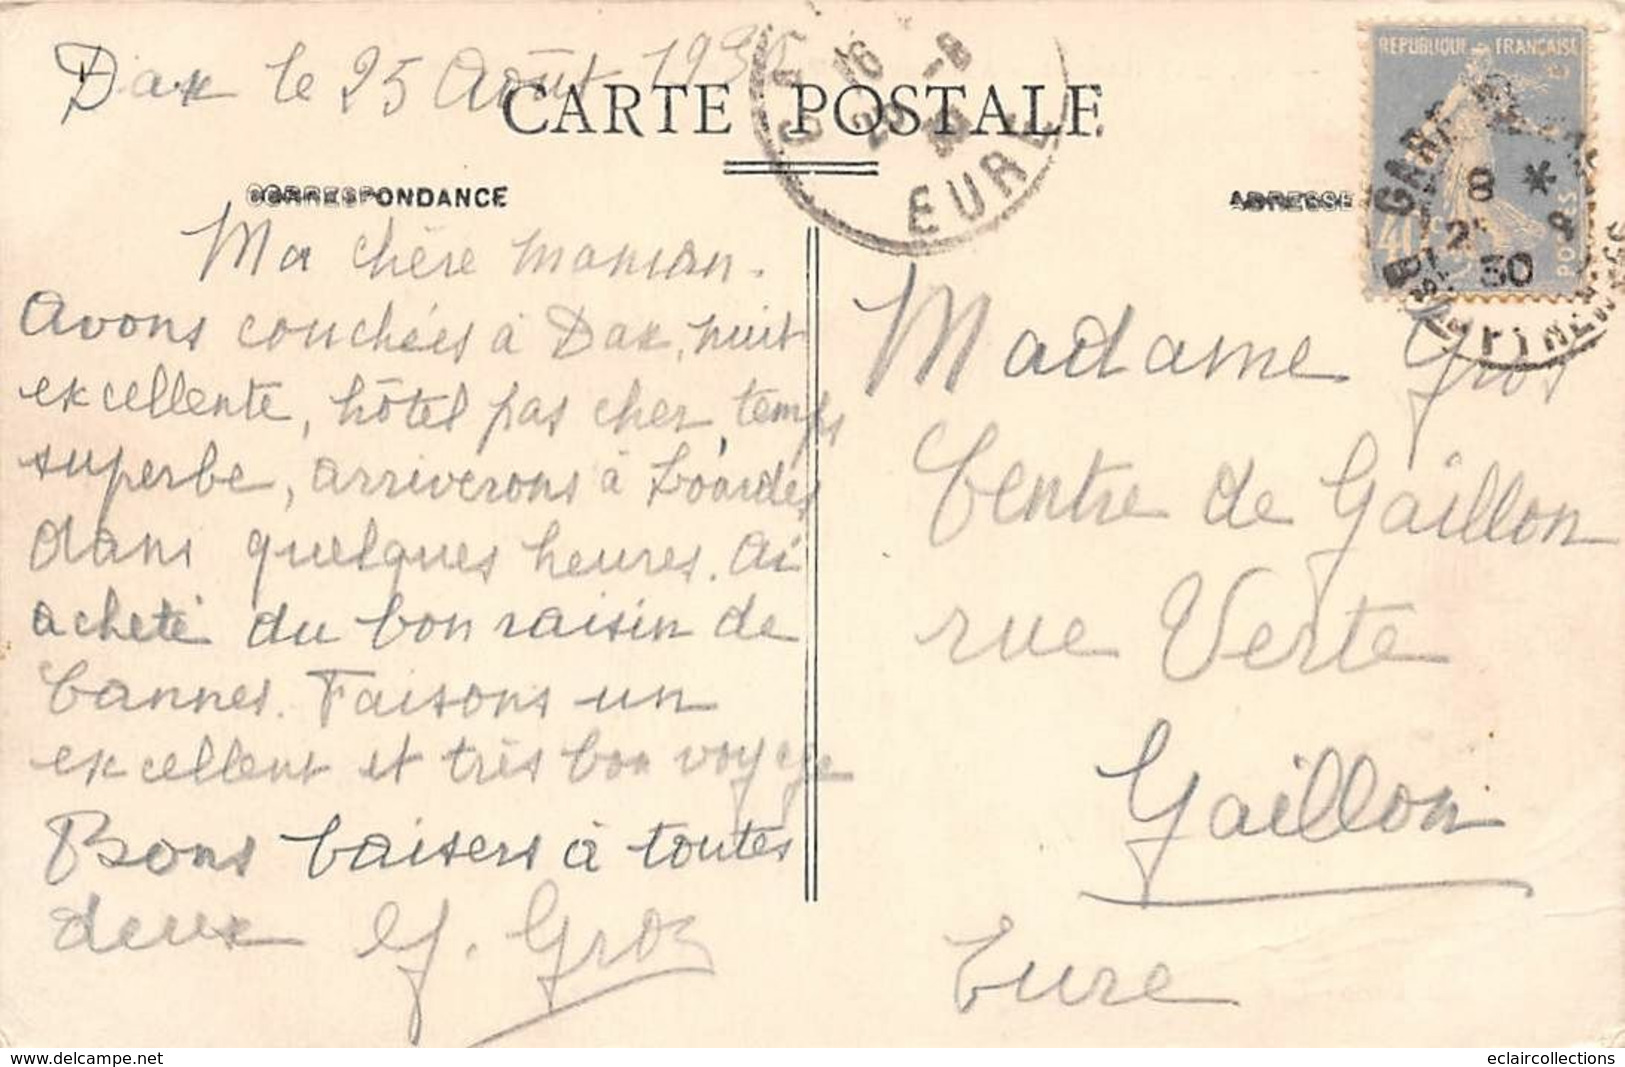 Dax le 25 Août 1930
CARTE POSTALE
CORRESPONDANCE
ADRESSE
EURE
16
REPUBLIQUE FRANÇAISE
40c
POSTES
GARE
8 *
25 8
30
Ma chère maman.
Avons couchées à Dax, nuit
excellente, hôtel pas cher, temps
superbe, arriverons à Lourdes
dans quelques heures. Ai
acheté du bon raisin de
Cannes. Faisons un
excellent et très bon voyage
Bons baisers à toutes
deux Y. Gros
Madame Gros
Centre de Gaillon
rue Verte
Gaillon
Eure
www.delcampe.net
eclaircollections